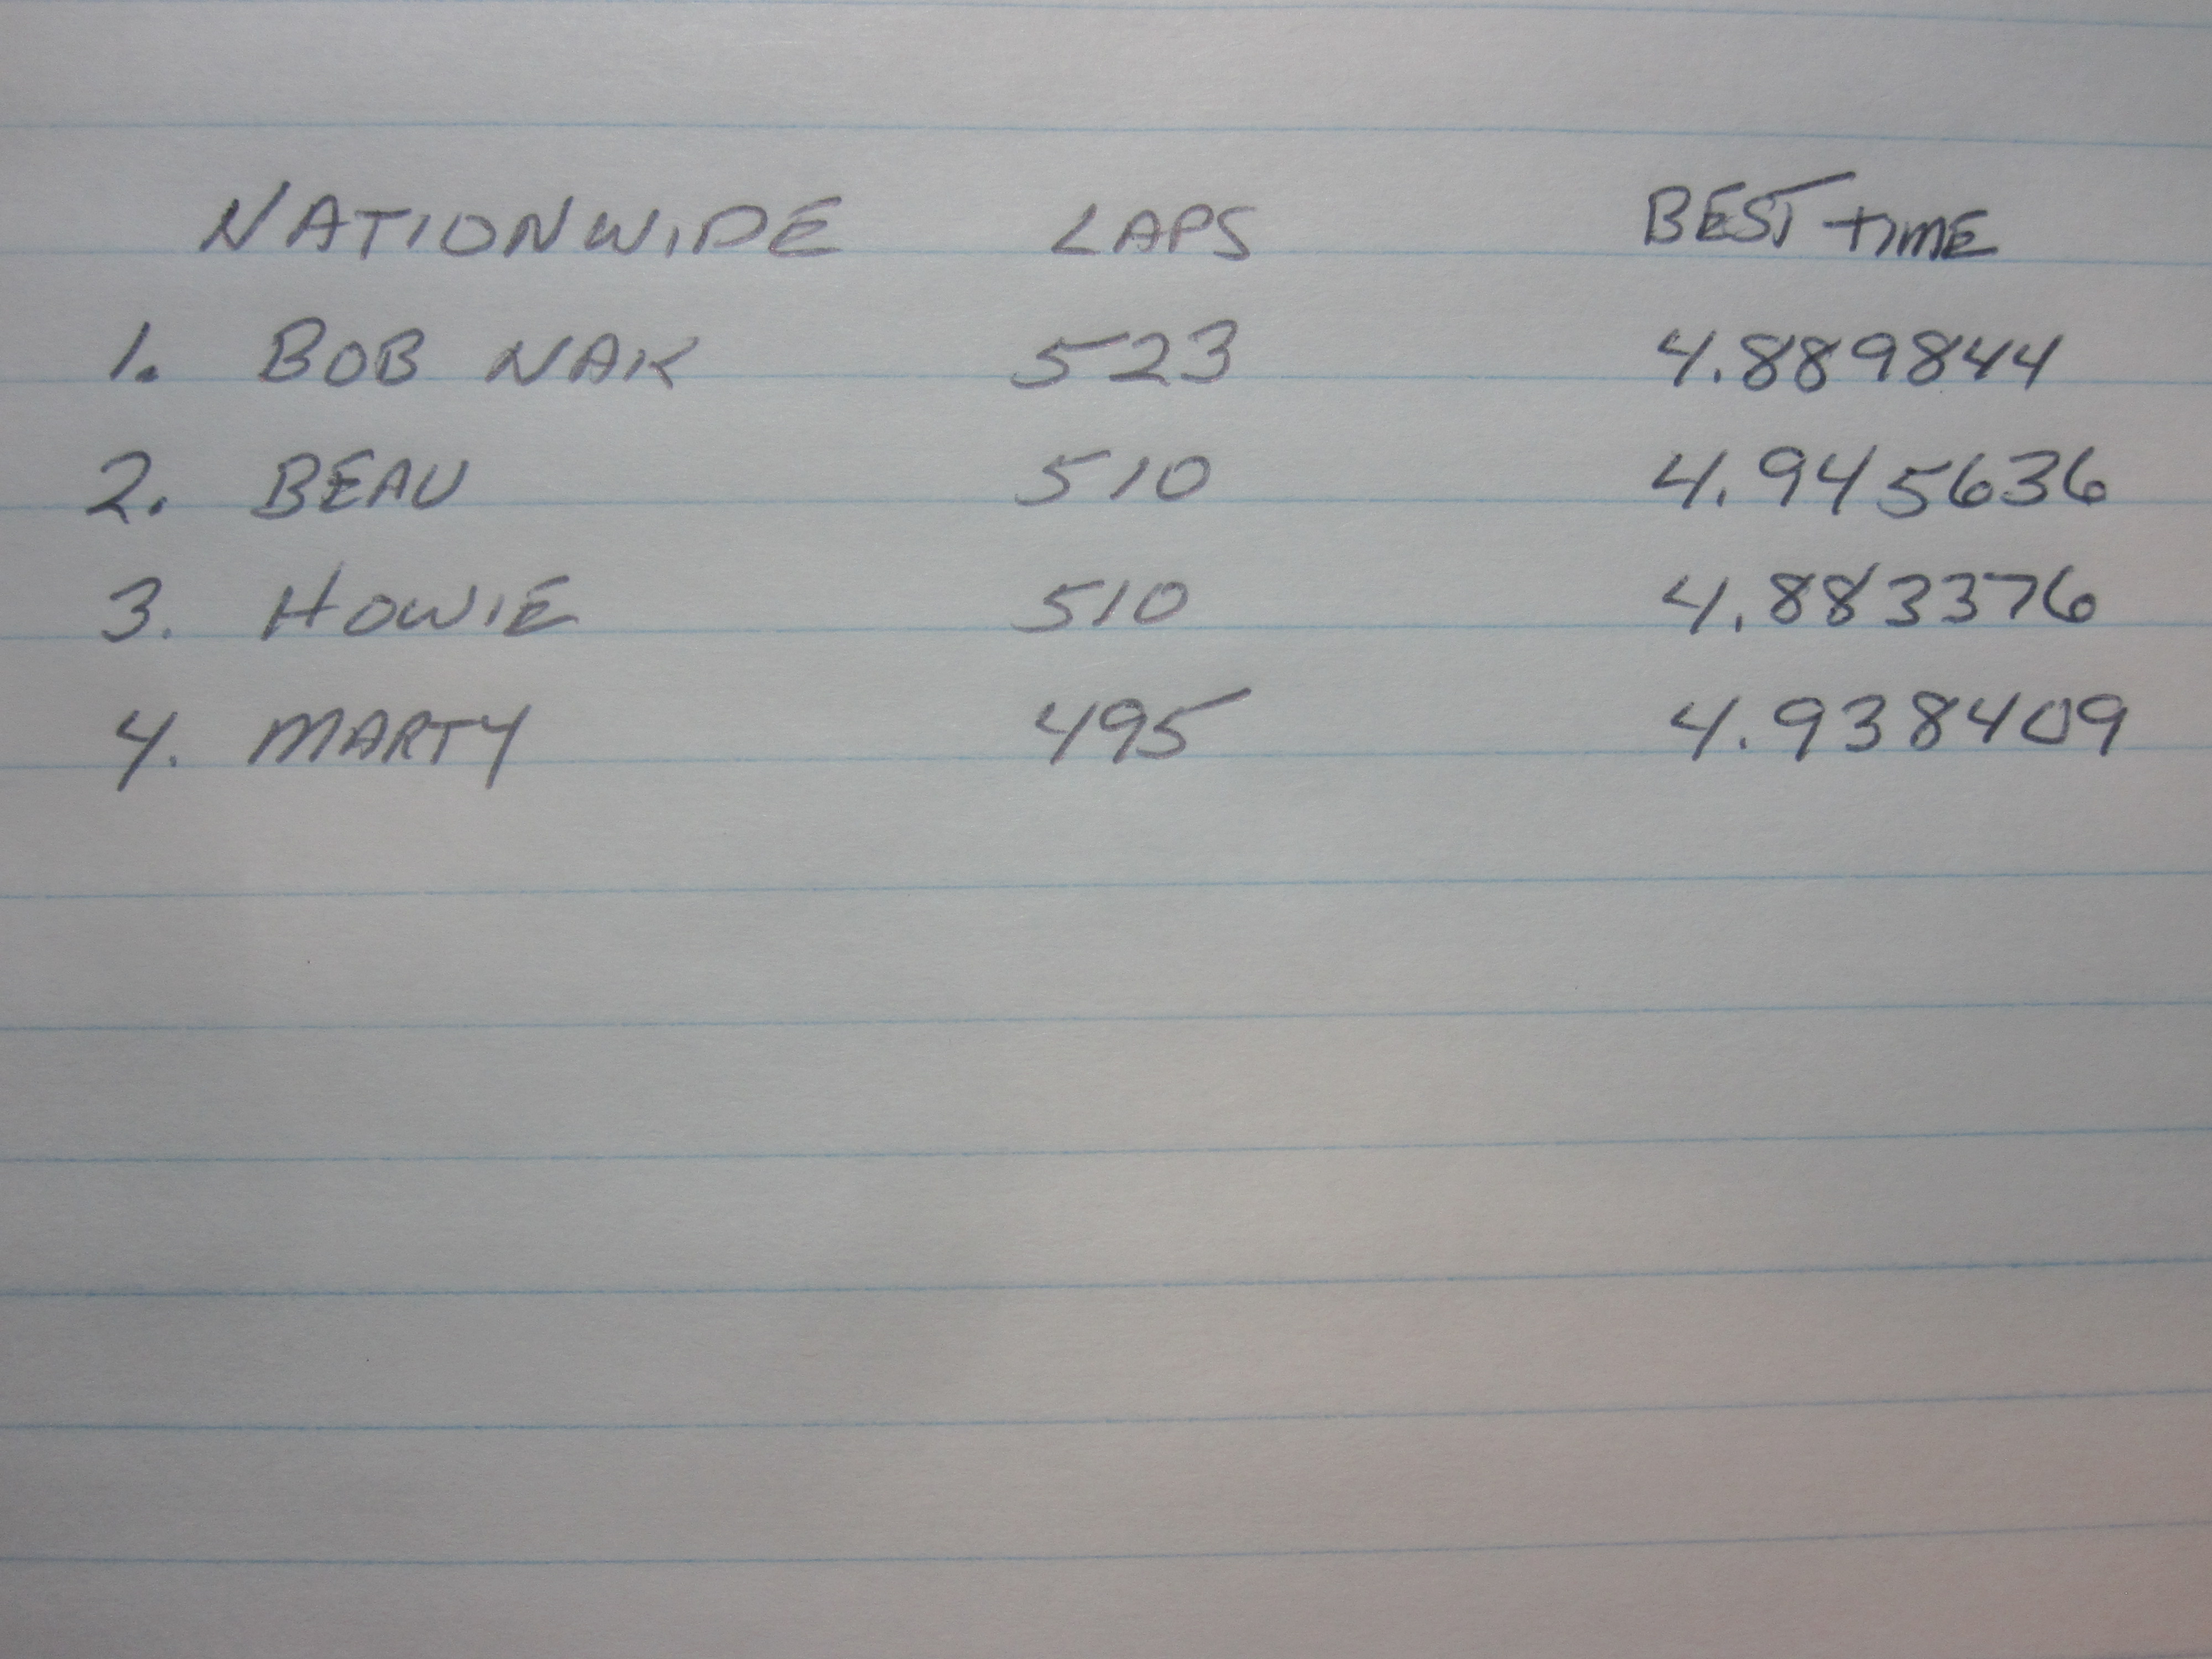 NATIONWIDE LAPS BEST TIME
1. BOB NAK 523 4.889844
2. BEAU 510 4.945636
3. HOWIE 510 4.883376
4. MARTY 495 4.938409